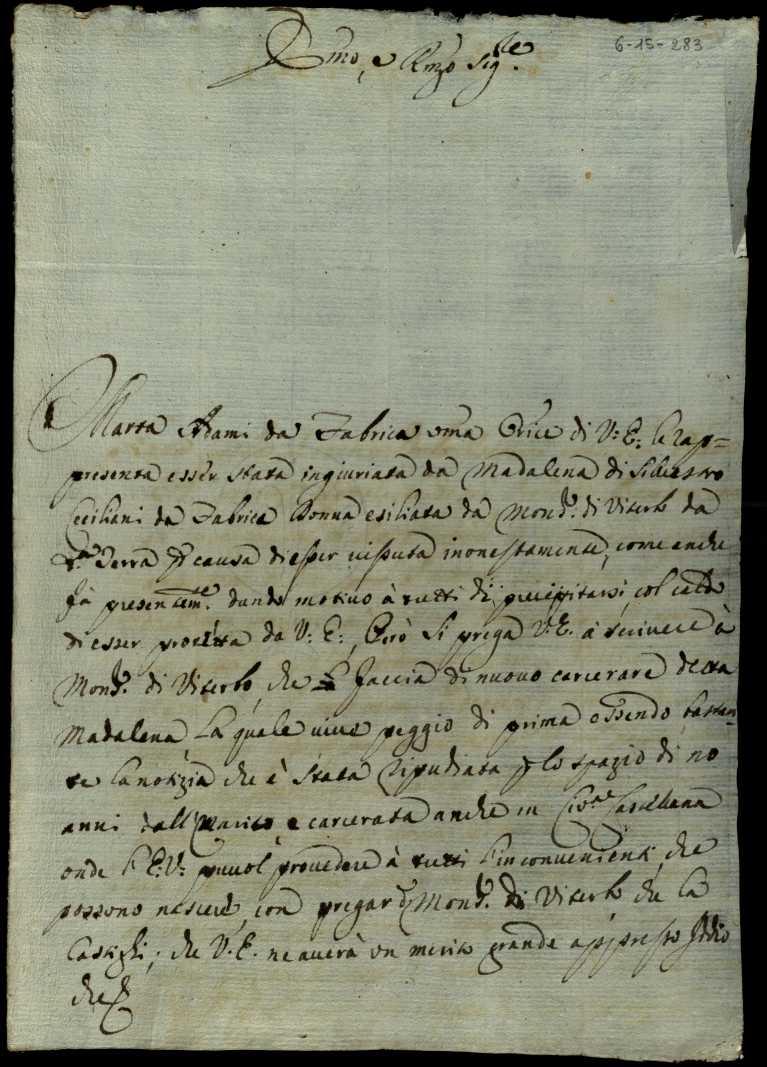 6-15-283
Emo, e Rmo Sig.re
Marta Adami da Fabrica uma Orice di V: E: le rap=
presenta esser stata ingiuriata da Madalena di Siluestro
Ceciliani da Fabrica Donna esiliata da Mons.r di Viterbo da
d.a Terra p causa di esser uissuta inonestamente, come anche
fà presentem.te dando motiuo à tutti di precipitarsi, col
di esser protetta da V: E:, Però si prega V.E. à scriuere à
Mons.r di Viterbo, che faccia di nuouo carcerare detta
Madalena, La quale uiue peggio di prima essendo bastan-
te la notizia che è stata ripudiata p lo spazio di no
anni dall Marito, e carcerata anche in Ciu.ta Castellana
onde l'E:V: puuol prouedere à tutti l'inconuenienti, che
possono nascere, con pregar d Mons.r di Viterbo che la
Castighi; che V.E. ne auerà un merito grande appresso Iddio
che